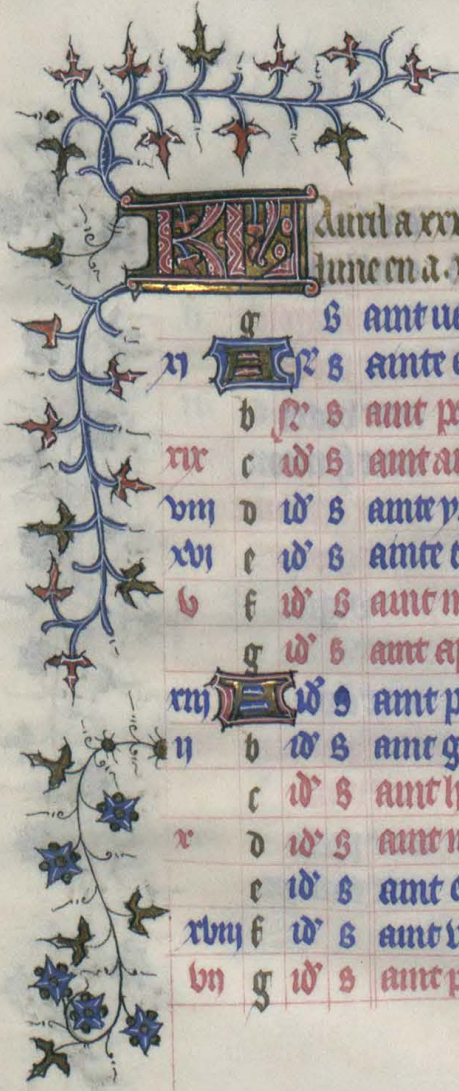 KL Auril a xxx
lune en a x
g S aint ue
xj A N' S ainte
b N' S aint p
xix c id' S aint a
viij d id' S ainte y
xvj e id' S ainte t
v f id' S aint
g id' S aint ap
xiij A id' S aint p
ij b id' S aint g
c id' S aint l
x d id' S aint
e id' S aint
xviij f id' S aint v
vij g id' S aint p